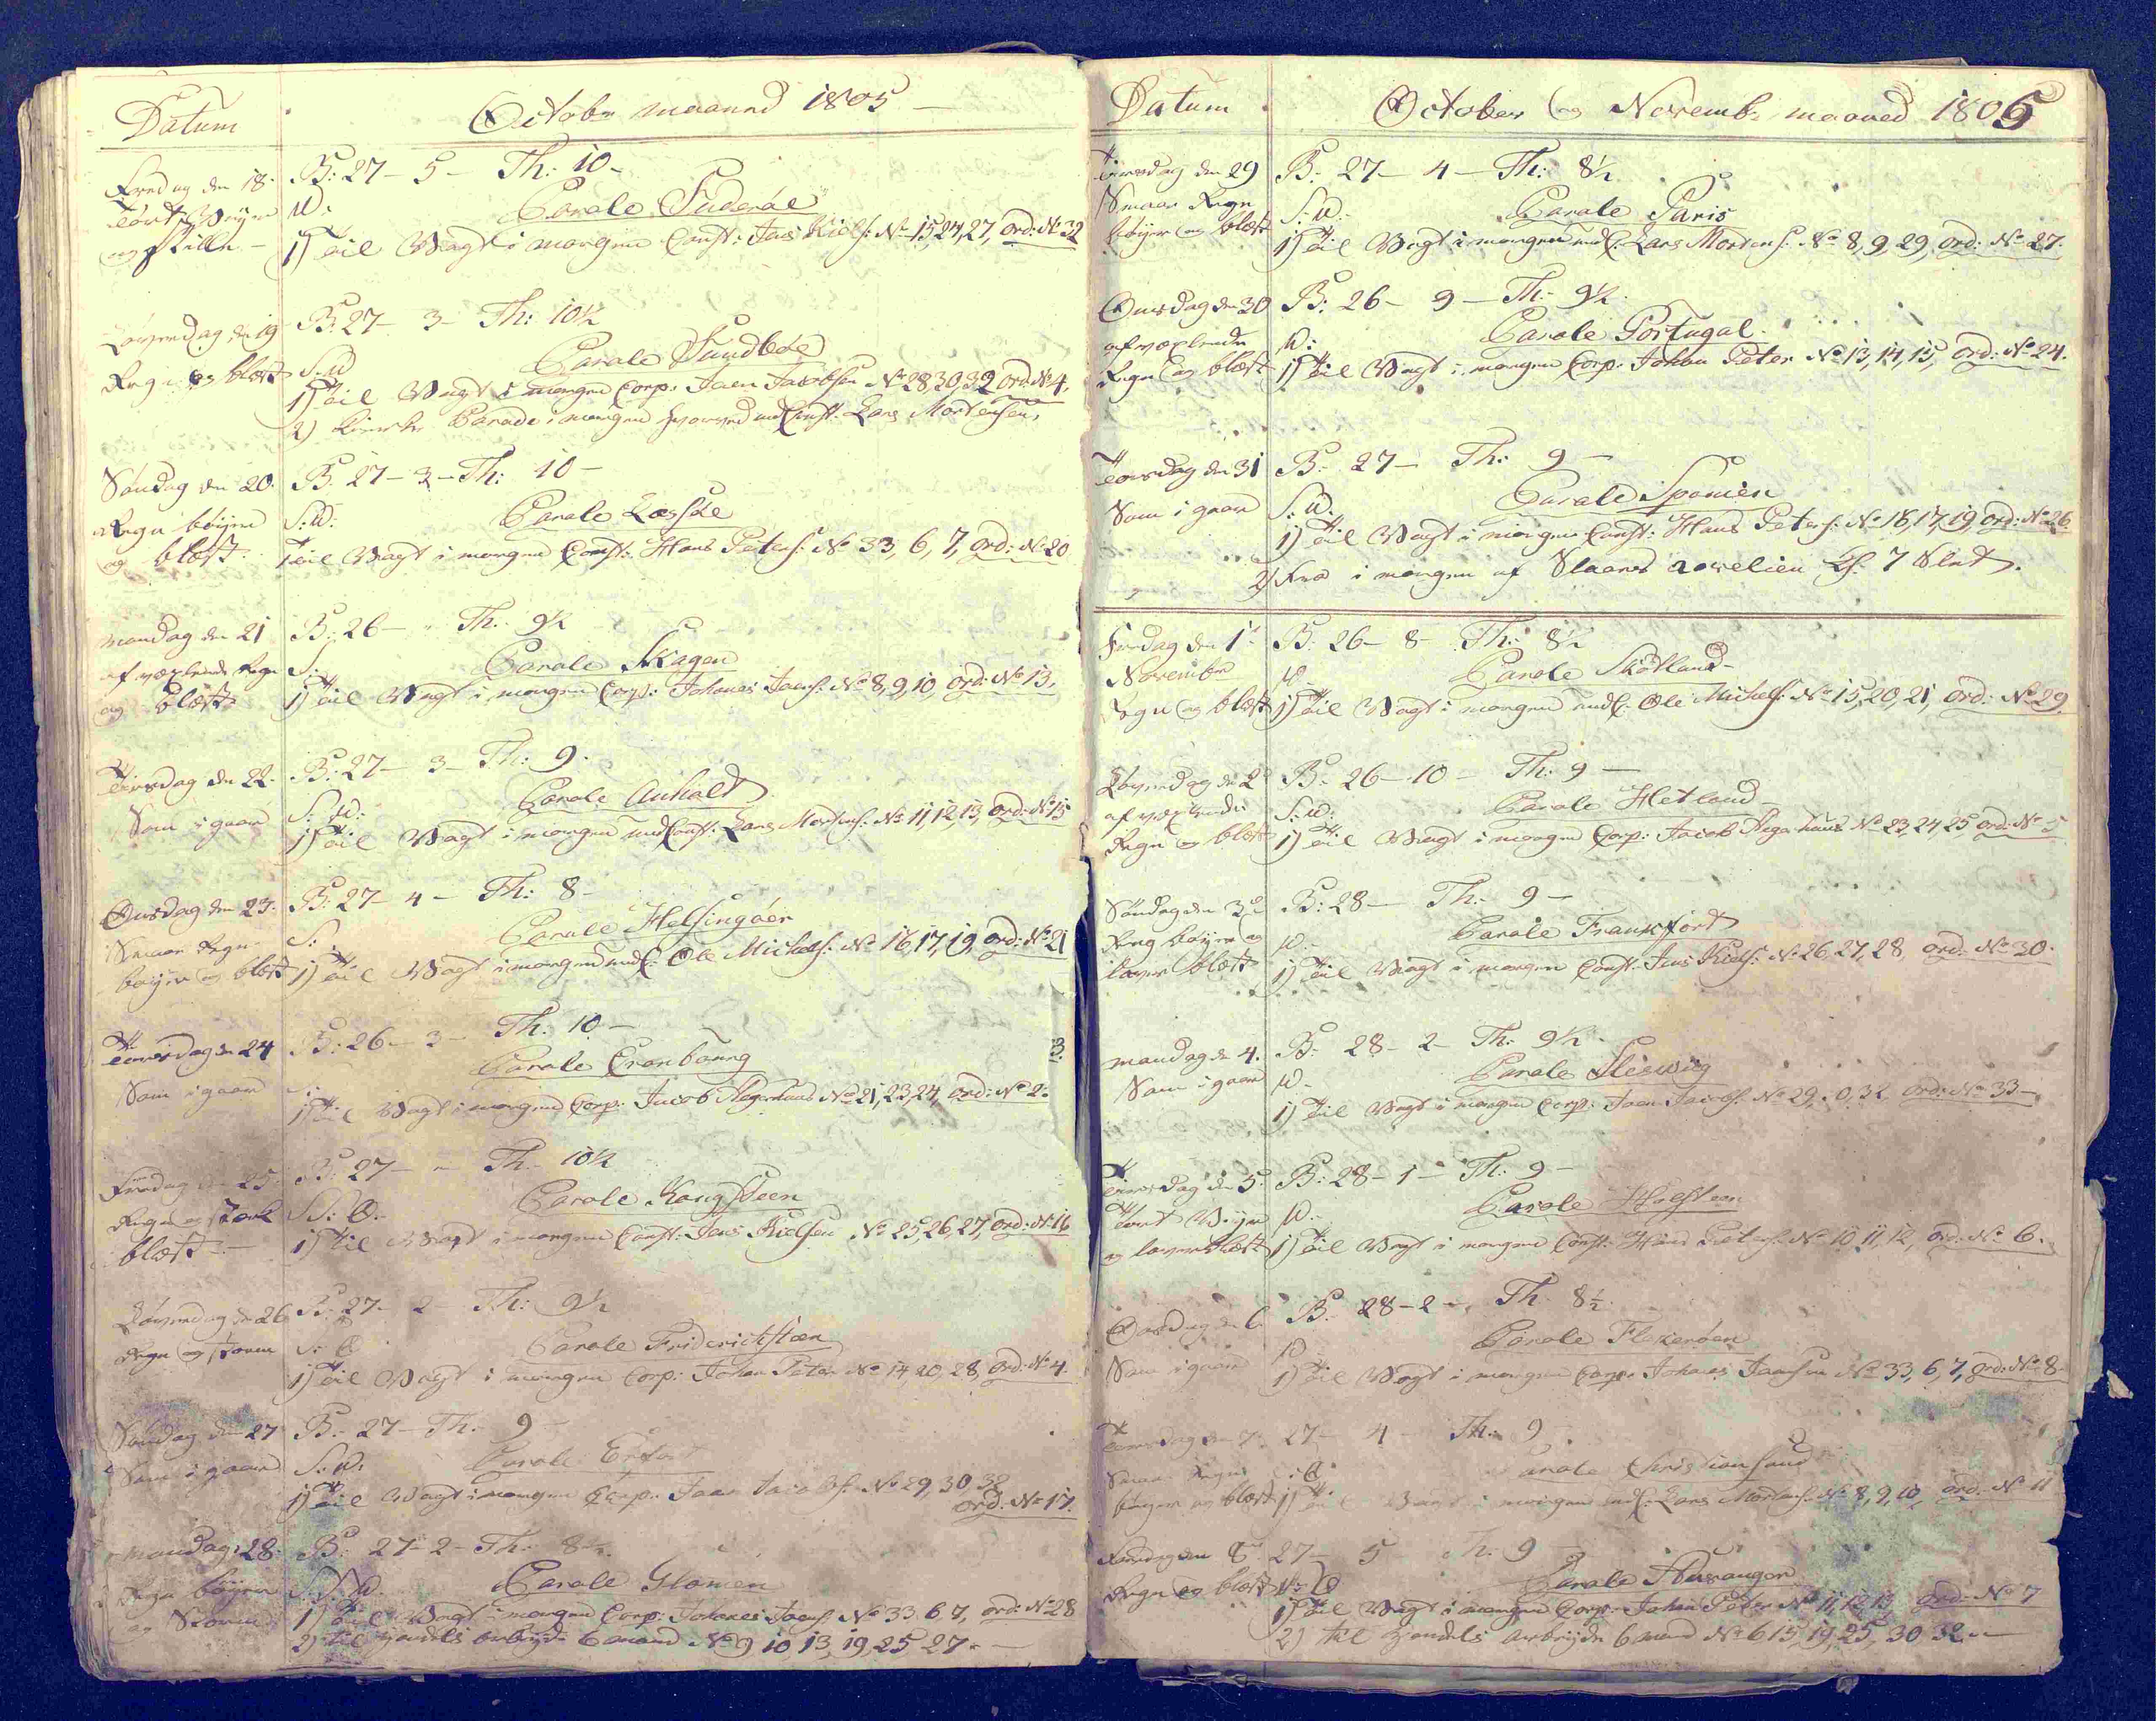 Datum
Octobr maaned 1805
Fredag den 18.
Tørt Veyr
og stille
B: 27 - 5 - Th: 10 -
W.
Parole Suderøe
1) Til Vagt i morgen Const: Jens Kiels: No 15, 24, 27, Ord: No 32
Løverdag den 19
Regn og blæst
B: 27 - 3 - Th: 10½
S:W
Parole Sundbøe
1) Til Vagt i morgen Corp: Joen Jacobsen No 28, 30, 32 Ord: No 4.
2) Kirke Parade i morgen hvorved Const: Lars Mortensen,
Søndag den 20.
Regn bøyer
og blæst.
B: 27 - 3 - Th: 10 -
S:W:
Parole Læssøe
Til Vagt i morgen Const: Hans Peters: No 33, 6, 7, Ord: No 20
Mandag den 21
afvexlende Regn
og Blæst
B: 26 - " Th: 9½
S:
Parole Skagen
1) Til Vagt i morgen Corp: Johanes Joens: No 8, 9, 10 Ord: No 13.
Tirsdag den 22.
Som i gaar
B: 27 - 3 - Th: 9.
S:W:
Parole Anholdt
1) Til Vagt i morgen Const: Lars Mortens: No 11, 12, 13, Ord: No 15
Onsdag den 23.
Smaae Regn
bøyer og blæst
B: 27 - 4 - Th: 8 -
S:
Parole Helsingøer
1) Til Vagt i morgen undC: Ole Michels: No 16, 17, 19, Ord: No 21
Torsdag den 24
Som i gaar
B: 26 - 3 - Th: 10 -
Parole Cronborg
1) Til Vagt i morgen Corp: Jacob Hegerhans No 21, 23, 24, Ord: No 2.
Fredag den 25.
Regn og stærk
blæst
B: 27 - " - Th: 10½
S: O.
Parole Kongsteen
1) Til Vagt i morgen Const: Jens Kielsen No 25, 26, 27, Ord: No 16
Løverdag den 26
Regn og storm
B: 27 - 2 - Th: 9½
S: O
Parole Friderichsteen
1) Til Vagt i morgen Corp: Johan Peter No 14, 20, 28, Ord: No 4.
Søndag den 27
Som i gaar
B: 27 - Th: 9 -
S:W:
Parole
1) Til Vagt i morgen Corp: Joen Jacobs: No 29, 30, 32
Ord: No 17.
Mandag 28.
Regn bøyer
og Storm
B: 27 - 2 - Th: 8½
S:S:W.
Parole Glomen
1) Til Vagt i morgen Corp: Johanes Joens: No 33 6 7, Ord: No 28
2) til Handels Arbeyde 6 mand No 9 10 13, 19, 25 27. -
Datum
October og Novembr maaned 1805
Tirsdag den 29
Smaae Regn
bøyer og blæst
B: 27 - 4 - Th: 8½
S:W.
Parole Paris
1) Til Vagt i morgen undC: Lars Mortens: No 8, 9, 29, Ord: No 27.
Onsdag den 30
afvexlende
Regn og blæst
B: 26 - 9 - Th: 9½.
W:
Parole Portugal.
1) Til Vagt i morgen Corp: Johan Peter No 13, 14, 15, Ord: No 24.
Torsdag den 31
Som i gaar
B: 27 - Th: 9 -
S:W.
Parole Spanien
1) Til Vagt i morgen Const: Hans Peters: No 16, 17, 19, Ord: No 26
2) Fra i morgen af Slaaes Revelien Kl: 7 Slet.
Fredag den 1
November
Regn og blæst
B: 26 - 8 - Th: 8½
W.
Parole Skotland
1) Til Vagt i morgen undC: Ole Michels: No 15, 20, 21, Ord: No 29.
Løverdag den 2
afvexlende
Regn og blæst
B: 26 - 10 - Th: 9 -
S:W:
Parole Hetland
1) Til Vagt i morgen Corp: Jacob Hegerhans No 23, 24 25 Ord: No 5
Søndag den 3
Regn bøyer og
laver blæst
B: 28 - Th: 9 -
W.
Parole Francfort
1) Til Vagt i morgen Const: Jens Kiels: No 26, 27, 28, Ord: No 30.
Mandag den 4.
Som i gaar
B: 28 - 2 - Th: 9½.
W.
Parole Sleswig
1) Til Vagt i morgen Corp: Joen Jacobs: No 29, 30, 32 Ord: No 33 -
Tirsdag den 5.
Tørt Veyr
og laver blæst
B: 28 - 1 - Th: 9 -
W.
Parole Holsteen
1) Til Vagt i morgen Const: Hans Peters: No 10, 11, 12, Ord: No 6.
Onsdag den 6
Som i gaar
B: 28 - 2 - Th 8½.
W
Parole Flekerøen
1) Til Vagt i morgen Corp: Johanes Joensen No 33, 6, 7, Ord: No 8
Torsdag den 7.
Smaae Regn
bøyer og blæst
27 - 4 - Th: 9.
Parole Christiansand
1) Til Vagt i morgen undC: Lars Mortens: No 8, 9, 10, Ord: No 11
Fredag den 8.
Regn og blæst
27 - 5 Th: 9 -
Parole Stavanger
1) Til Vagt i morgen Corp: Johan Peter No 11, 12, 13, Ord: No 7
2) til Handels Arbeyde 6 mand No 6 15, 19, 25, 30 32. -